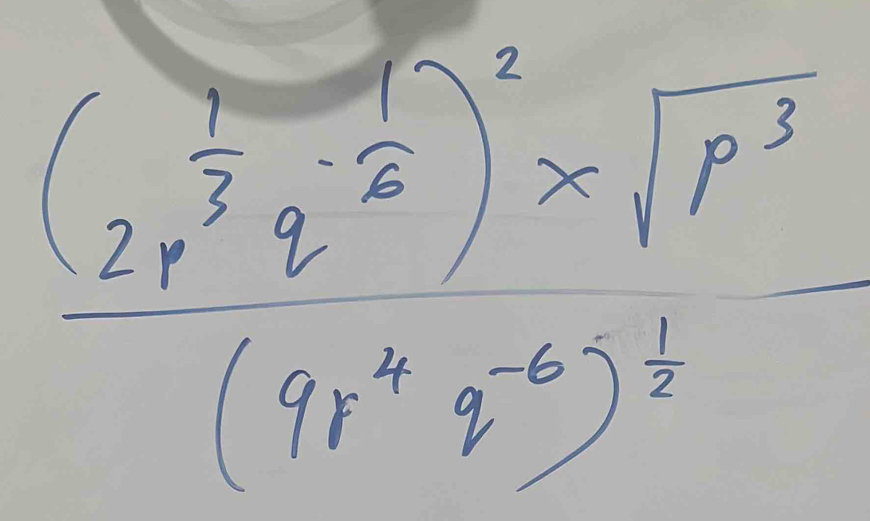 (2p^{1/3} q^{-1/6})^2 × √(p^3)
(9p^4 q^{-6})^{1/2}